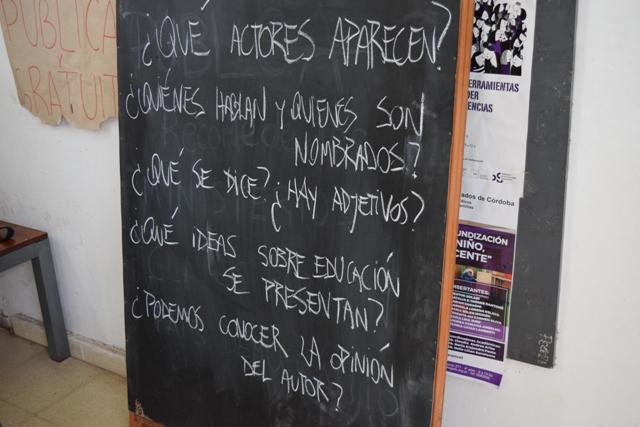 PÚBLICA
Y
GRATUIT
¿QUÉ ACTORES APARECEN?
¿QUIÉNES HABLAN Y QUIENES SON
NOMBRADOS?
¿QUÉ SE DICE? ¿HAY ADJETIVOS?
¿QUÉ IDEAS SOBRE EDUCACIÓN
SE PRESENTAN?
¿PODEMOS CONOCER LA OPINIÓN
DEL AUTOR?
ERRAMIENTAS
DER
ENCIAS
ados de Córdoba
UNDIZACIÓN
NIÑO,
CENTE"
SERTANTES: